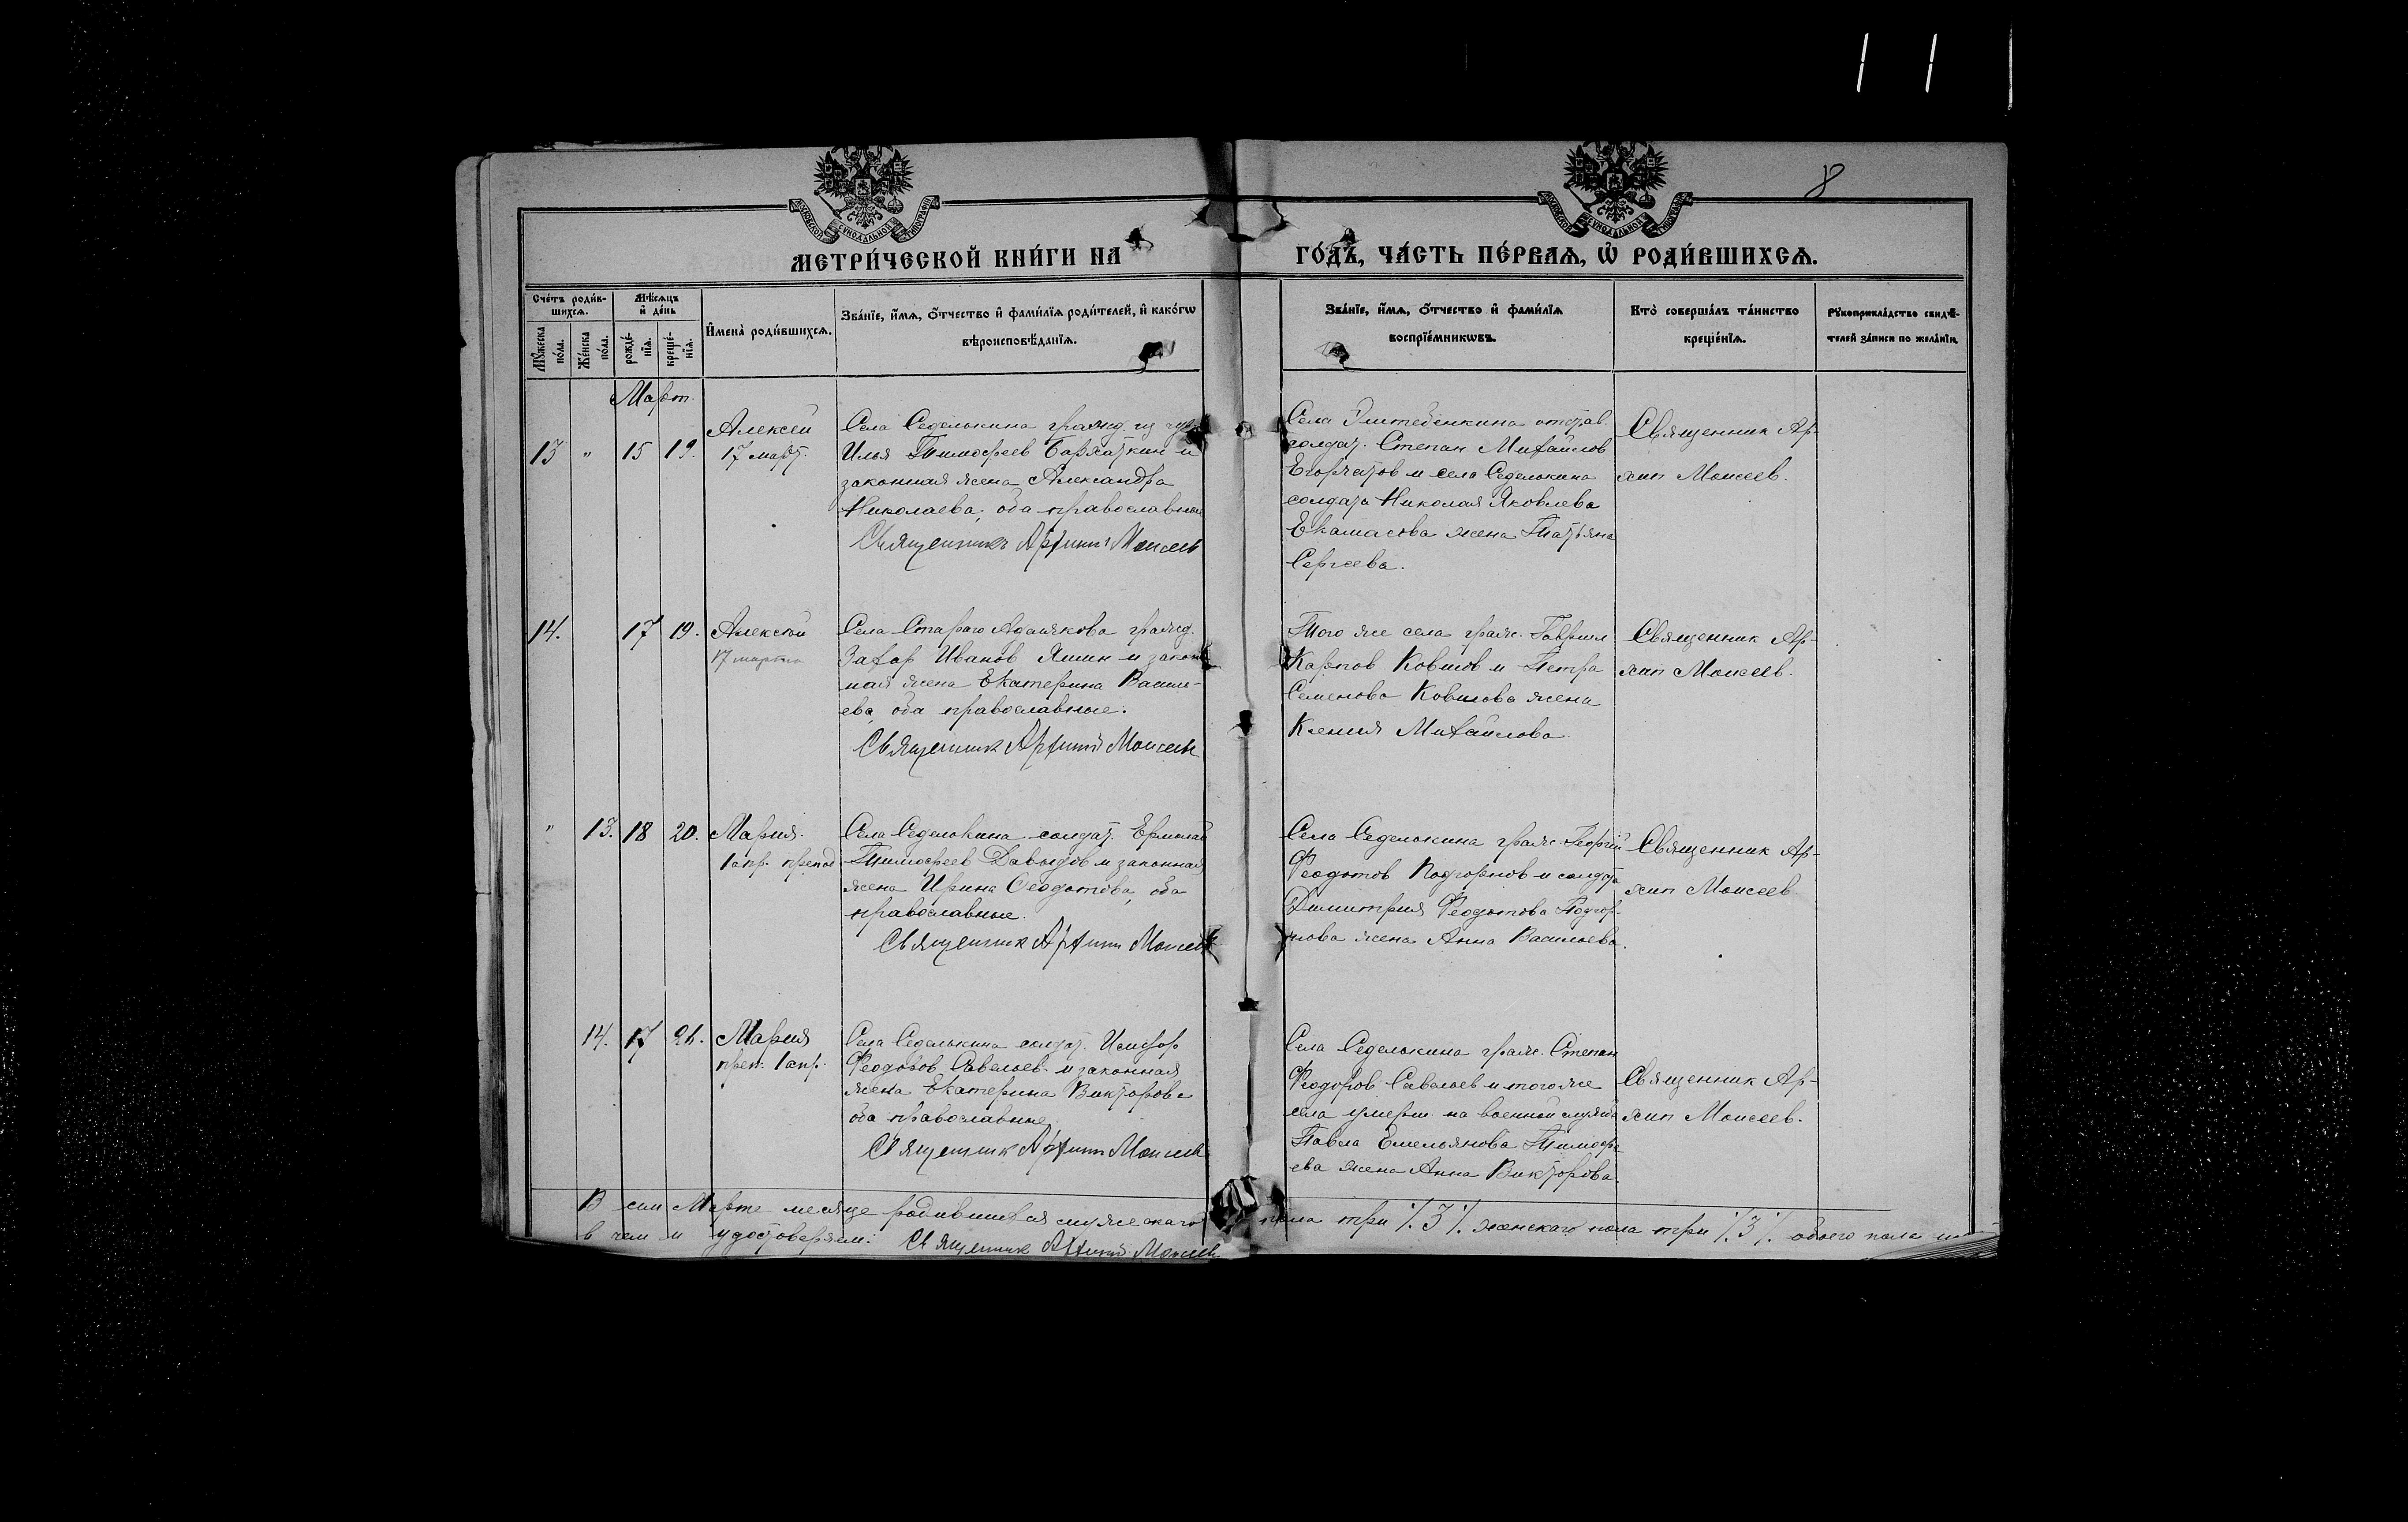 8
МЕТРИ́ЧЕСКОЙ КНИ́ГИ НА ГО́ДЪ, ЧА́СТЬ ПЕ́РВАѦ, Ѡ҆ РОДИ́ВШИХСѦ.
Сче́тъ роди́в-
шихсѧ.
Мꙋ́жеска по́ла.
Же́нска по́ла.
Мѣ́сѧцъ
и҆ де́нь
рожде́-
нїѧ.
креще́-
нїѧ.
И҆мена̀ роди́вшихсѧ.
Зва́нїе, и҆́мѧ, ѻ҆́тчество и҆ фами́лїѧ роди́телей, и҆ како́гѡ
вѣроисповѣ́данїѧ.
Зва́нїе, и҆́мѧ, ѻ҆́тчество и҆ фами́лїѧ
воспрїе́мникѡвъ.
Кто̀ соверша́лъ та́инство
креще́нїѧ.
Рꙋкоприкла́дство свидѣ́-
телей за́писи по жела́нїю.
Март.
13 " 15 19.
Алексей
17 март.
Села Седелькина гражд. из
Илья Тимофеев Бархаткин и
законная жена Александра
Николаева, оба православные
Священникъ Архипъ Моисеев
Села отстав.
солдат. Степан Михайлов
и села Седелькина
солдата Николая Яковлева
жена Татьяна
Сергеева.
Священник Ар-
хип Моисеев.
14. 17 19.
Алексей
17 марта
Села Стараго Адамкова гражд.
Захар Иванов Яшин и закон
ная жена Екатерина Василь-
ева, оба православные.
Священник Архипъ Моисеев
Того же села граж. Гавриил
Карпов Ковшов и Петра
Семенова Ковшова жена
Ксения Михайлова.
Священник Ар-
хип Моисеев.
" 13. 18 20.
Мария.
1 апр. препод
Села Седелькина солдат. Ермолай
Тимофеев Давыдов и законная
жена Ирина Феодотова, оба
православные.
Священник Архип Моисеев
Села Седелькина граж. Георгий
Феодотов Подгорнов и солдата
Димитрия Феодотова Подгор-
нова жена Анна Васильева.
Священник Ар-
хип Моисеев
14. 17 21.
Мария
преп. 1 апр.
Села Седелькина солдат. Исидор
Феодоров Савельев и законная
жена Екатерина Викторова
оба православные
Священник Архип Моисеев
Села Седелькина граж. Степан
Феодоров Савельев и того же
села умерш. на военной службе
Павла Емельянова Тимофе
ева жена Анна Викторова.
Священник Ар-
хип Моисеев.
В сем Марте месяце родившихся мужескаго пола три ٪ 3 ٪. женскаго пола три ٪ 3 ٪. обоего пола
в чем и удостоверяем: Священник Архипъ Моисеев